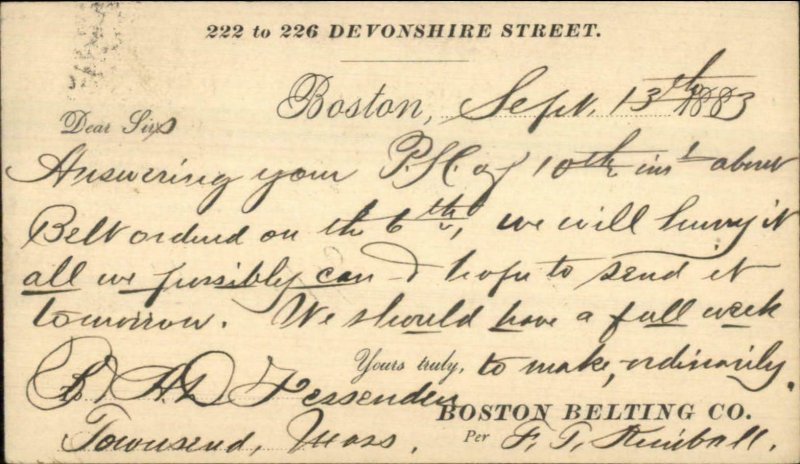 222 to 226 DEVONSHIRE STREET.
Boston, Sept. 13th 1883
Dear Sirs
Answering your P.C. of 10th inst about
Belt ordered on the 6th, we will hurry it
all we possibly can & hope to send it
tomorrow. We should have a full week
Yours truly, to make, ordinarily.
A. D. Fessenden
BOSTON BELTING CO.
Townsend, Mass. Per F. T. Kimball.